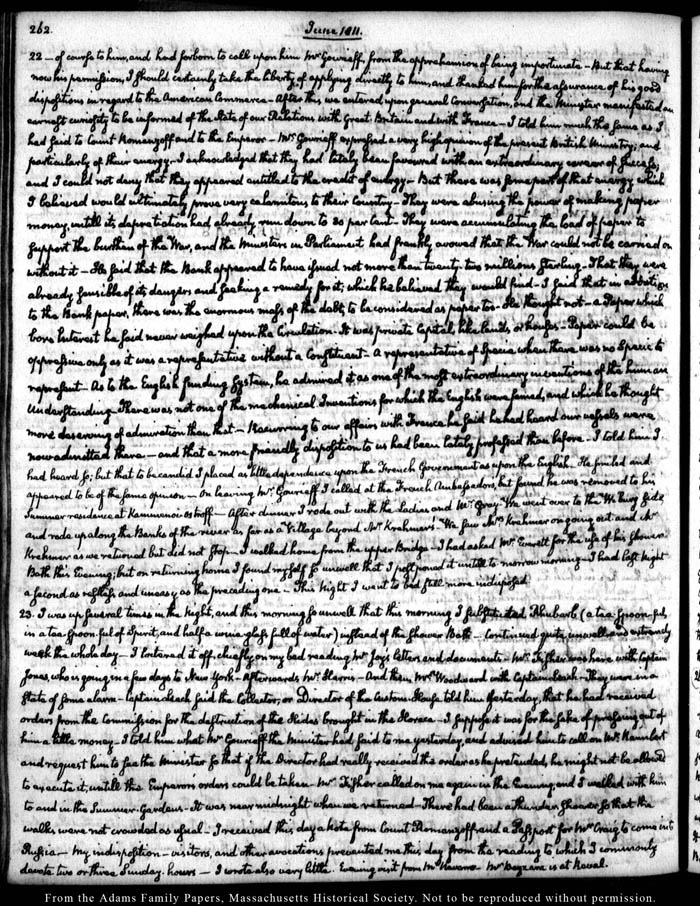 262.
June 1811.
22 — of course to him, and had forborn to call upon him Mr Gourieff, from the apprehension of being importunate — But that having
now his permission, I should certainly take the liberty of applying directly to him, and thanked him for the assurance of his good
dispositions in regard to the American Commerce — After this we entered upon general Conversation, and the Minister manifested an
earnest curiosity to be informed of the State of our Relations with Great Britain and with France — I told him much the same as I
had said to Count Romanzoff and to the Emperor — Mr Gourieff expressed a very high opinion of the present British Ministry; and
particularly of their energy. I acknowledged that they had lately been favoured with an extraordinary career of success;
and I could not deny that they appeared entitled to the credit of energy — But there was some part of that energy which
I believed would ultimately prove very calamitous to their Country — They were abusing the power of making paper
money, untill its depreciation had already run down to 30 per Cent — They were accumulating the load of paper to
support the burthen of the War, and the Ministers in Parliament had frankly avowed that the War could not be carried on
without it — He said that the Bank appeared to have issued not more than twenty-two millions sterling — That they were
already sensible of its dangers and seeking a remedy for it; which he believed they would find — I said that in addition
to the Bank paper, there was the enormous mass of the debt, to be considered as paper too — He thought not — a Paper which
bore Interest he said never weighed upon the Circulation — It was private Capital, like lands, or houses — Paper could be
oppressive only as it was a representative without a Constituent — A representative of Specie when there was no Specie to
represent — As to the English funding System, he admired it as one of the most extraordinary inventions of the human
Understanding — There was not one of the mechanical Inventions for which the English were famed, and which he thought
more deserving of admiration than that — Recurring to our affairs with France he said he had heard our vessels were
now admitted there — and that a more friendly disposition to us had been lately professed than before. I told him I
had heard so; but that to be candid I placed as little dependence upon the French Government as upon the English. He smiled and
appeared to be of the same opinion — On leaving Mr Gourieff I called at the French Ambassadors, but found he was removed to his
Summer residence at Kammenoi-ostroff — After dinner I rode out with the Ladies and Mr Gray — We went over to the Wiburg side
and rode up along the Banks of the river as far as a Village beyond Mr Krehmer's — We saw Mrs Krehmer on going out and Mr
Krehmer as we returned but did not stop — I walked home from the upper Bridge — I had asked Mr Everett for the use of his shower
Bath this Evening; but on returning home I found myself so unwell that I postponed it untill to morrow morning — I had last night
a second as restless and uneasy as the preceding one — This Night I went to bed still more indisposed
23. I was up several times in the Night, and this morning so unwell that this morning I substituted Rhubarb (a tea-spoon-full,
in a tea-spoon-ful of Spirit, and half a wine-glass full of water) instead of the Shower Bath — Continued quite unwell and extremely
weak the whole day — I loitered it off, chiefly on my bed reading Mr Jay's letters and documents — Mr Fisher was here with Captain
Jones who is going in a few days to New York — Afterwards Mr Harris — And then Mr Woodward with Captain Leach — They were in a
State of some alarm — Captain Leach said the Collector, or Director of the Custom House told him yesterday, that he had received
orders from the Commission for the destruction of the Hides brought in the Horace — I suppose it was for the sake of pressing out of
him a little money — I told him what Mr Gourieff the Minister had said to me yesterday, and advised him to call on Mr
and request him to see the Minister so that if the Director had really received the order as he pretended, he might not be allowed
to execute it, untill the Emperor's orders could be taken — Mr Fisher called on me again in the Evening, and I walked with him
to and in the Summer-Gardens — It was near midnight when we returned — There had been a thunder shower so that the
walks were not crowded as usual — I received this day a Note from Count Romanzoff, and a Passport for Mrs Craig to come into
Russia — My indisposition — visitors, and other avocations prevented me this day from the reading to which I commonly
devote two or three Sunday hours — I wrote also very little. Evening visit from Mr Navarro. Mr is at Naval.
From the Adams Family Papers, Massachusetts Historical Society. Not to be reproduced without permission.